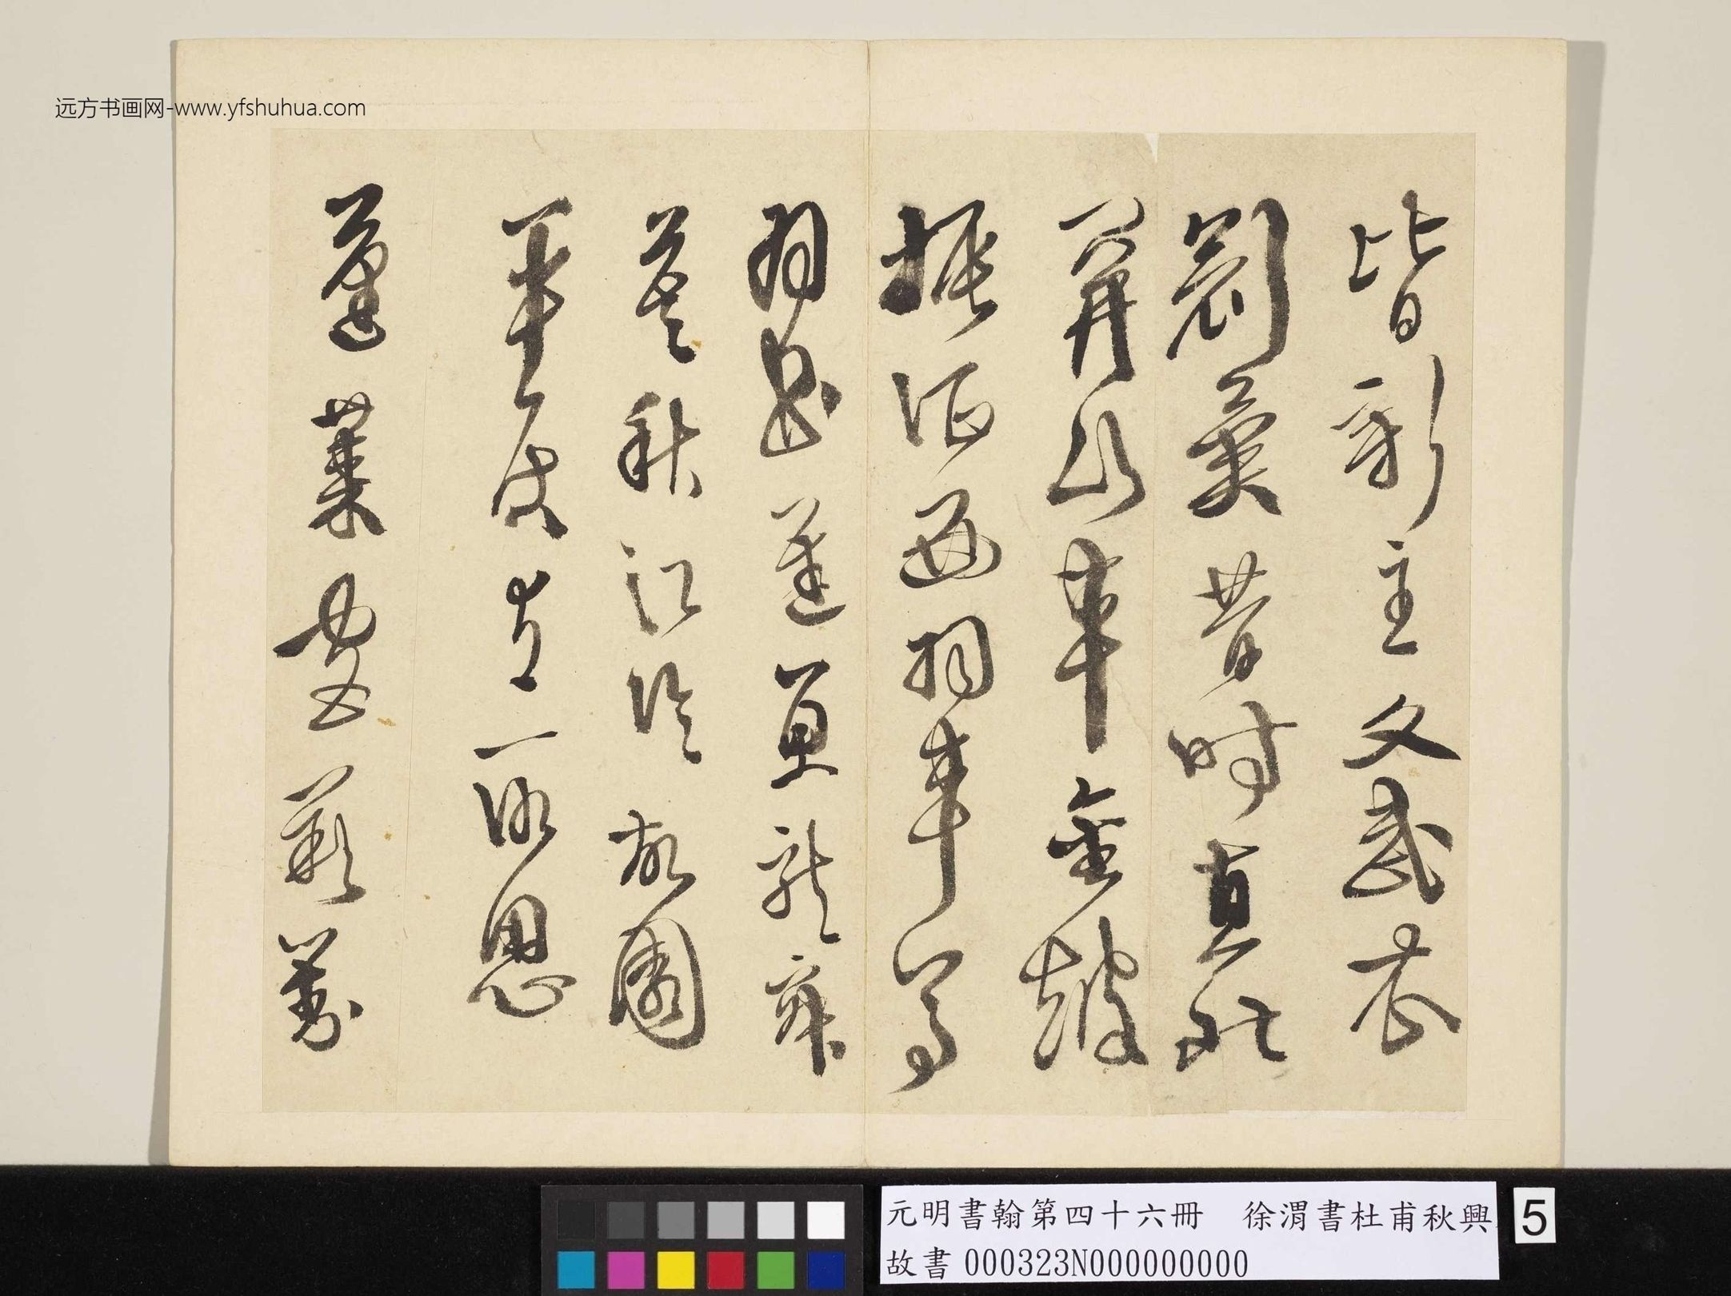 远方书画网-www.yfshuhua.com
皆新主文武衣
冠異昔時直北
關山車金皷
振征西羽車馬
羽書遲魚龍寂
寞秋江冷故國
平居有所思
蓬萊宮闕對
元明書翰第四十六冊 徐渭書杜甫秋興
故書 000323N000000000
5